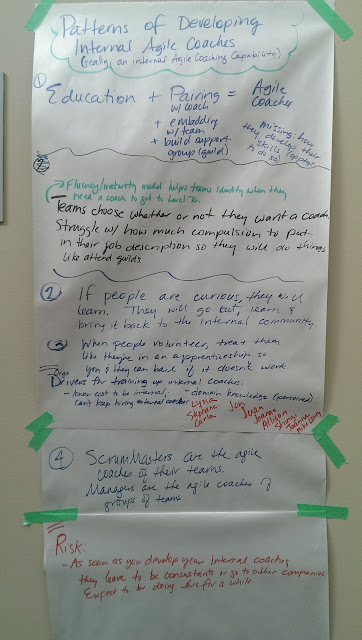 Patterns of Developing
Internal Agile Coaches
(really an internal Agile Coaching Capability)
①
Education + Pairing = Agile Coaches
w/ coach
+ embedding
w/ team
+ build support
group (guild)
Missing: how
they develop their
skills (appren
to do so)
②
Fluency/maturity model helps teams identify when they
need a coach to get to Level
Teams choose whether or not they want a coach.
Struggle w/ how much compulsion to put
in their job description so they will do things
like attend guilds.
② If people are curious, they will
learn. They will go out, learn &
bring it back to the internal community
③ When people volunteer, treat them
like they're in an apprenticeship so
you & they can bail if it doesn't work.
Orgs
Drivers for training up internal coaches:
- lower cost to be internal. - domain knowledge (perceived)
Can't keep hiring external coaches
Lyssa
Stephanie
Carla
Jay
Juan
Joanne
Allison
④ ScrumMasters are the agile
coaches of their teams.
Managers are the agile coaches of
groups of teams
Risk:
- As soon as you develop your internal coaching
they leave to be consultants or go to other companies.
Expect to be doing this for a while.